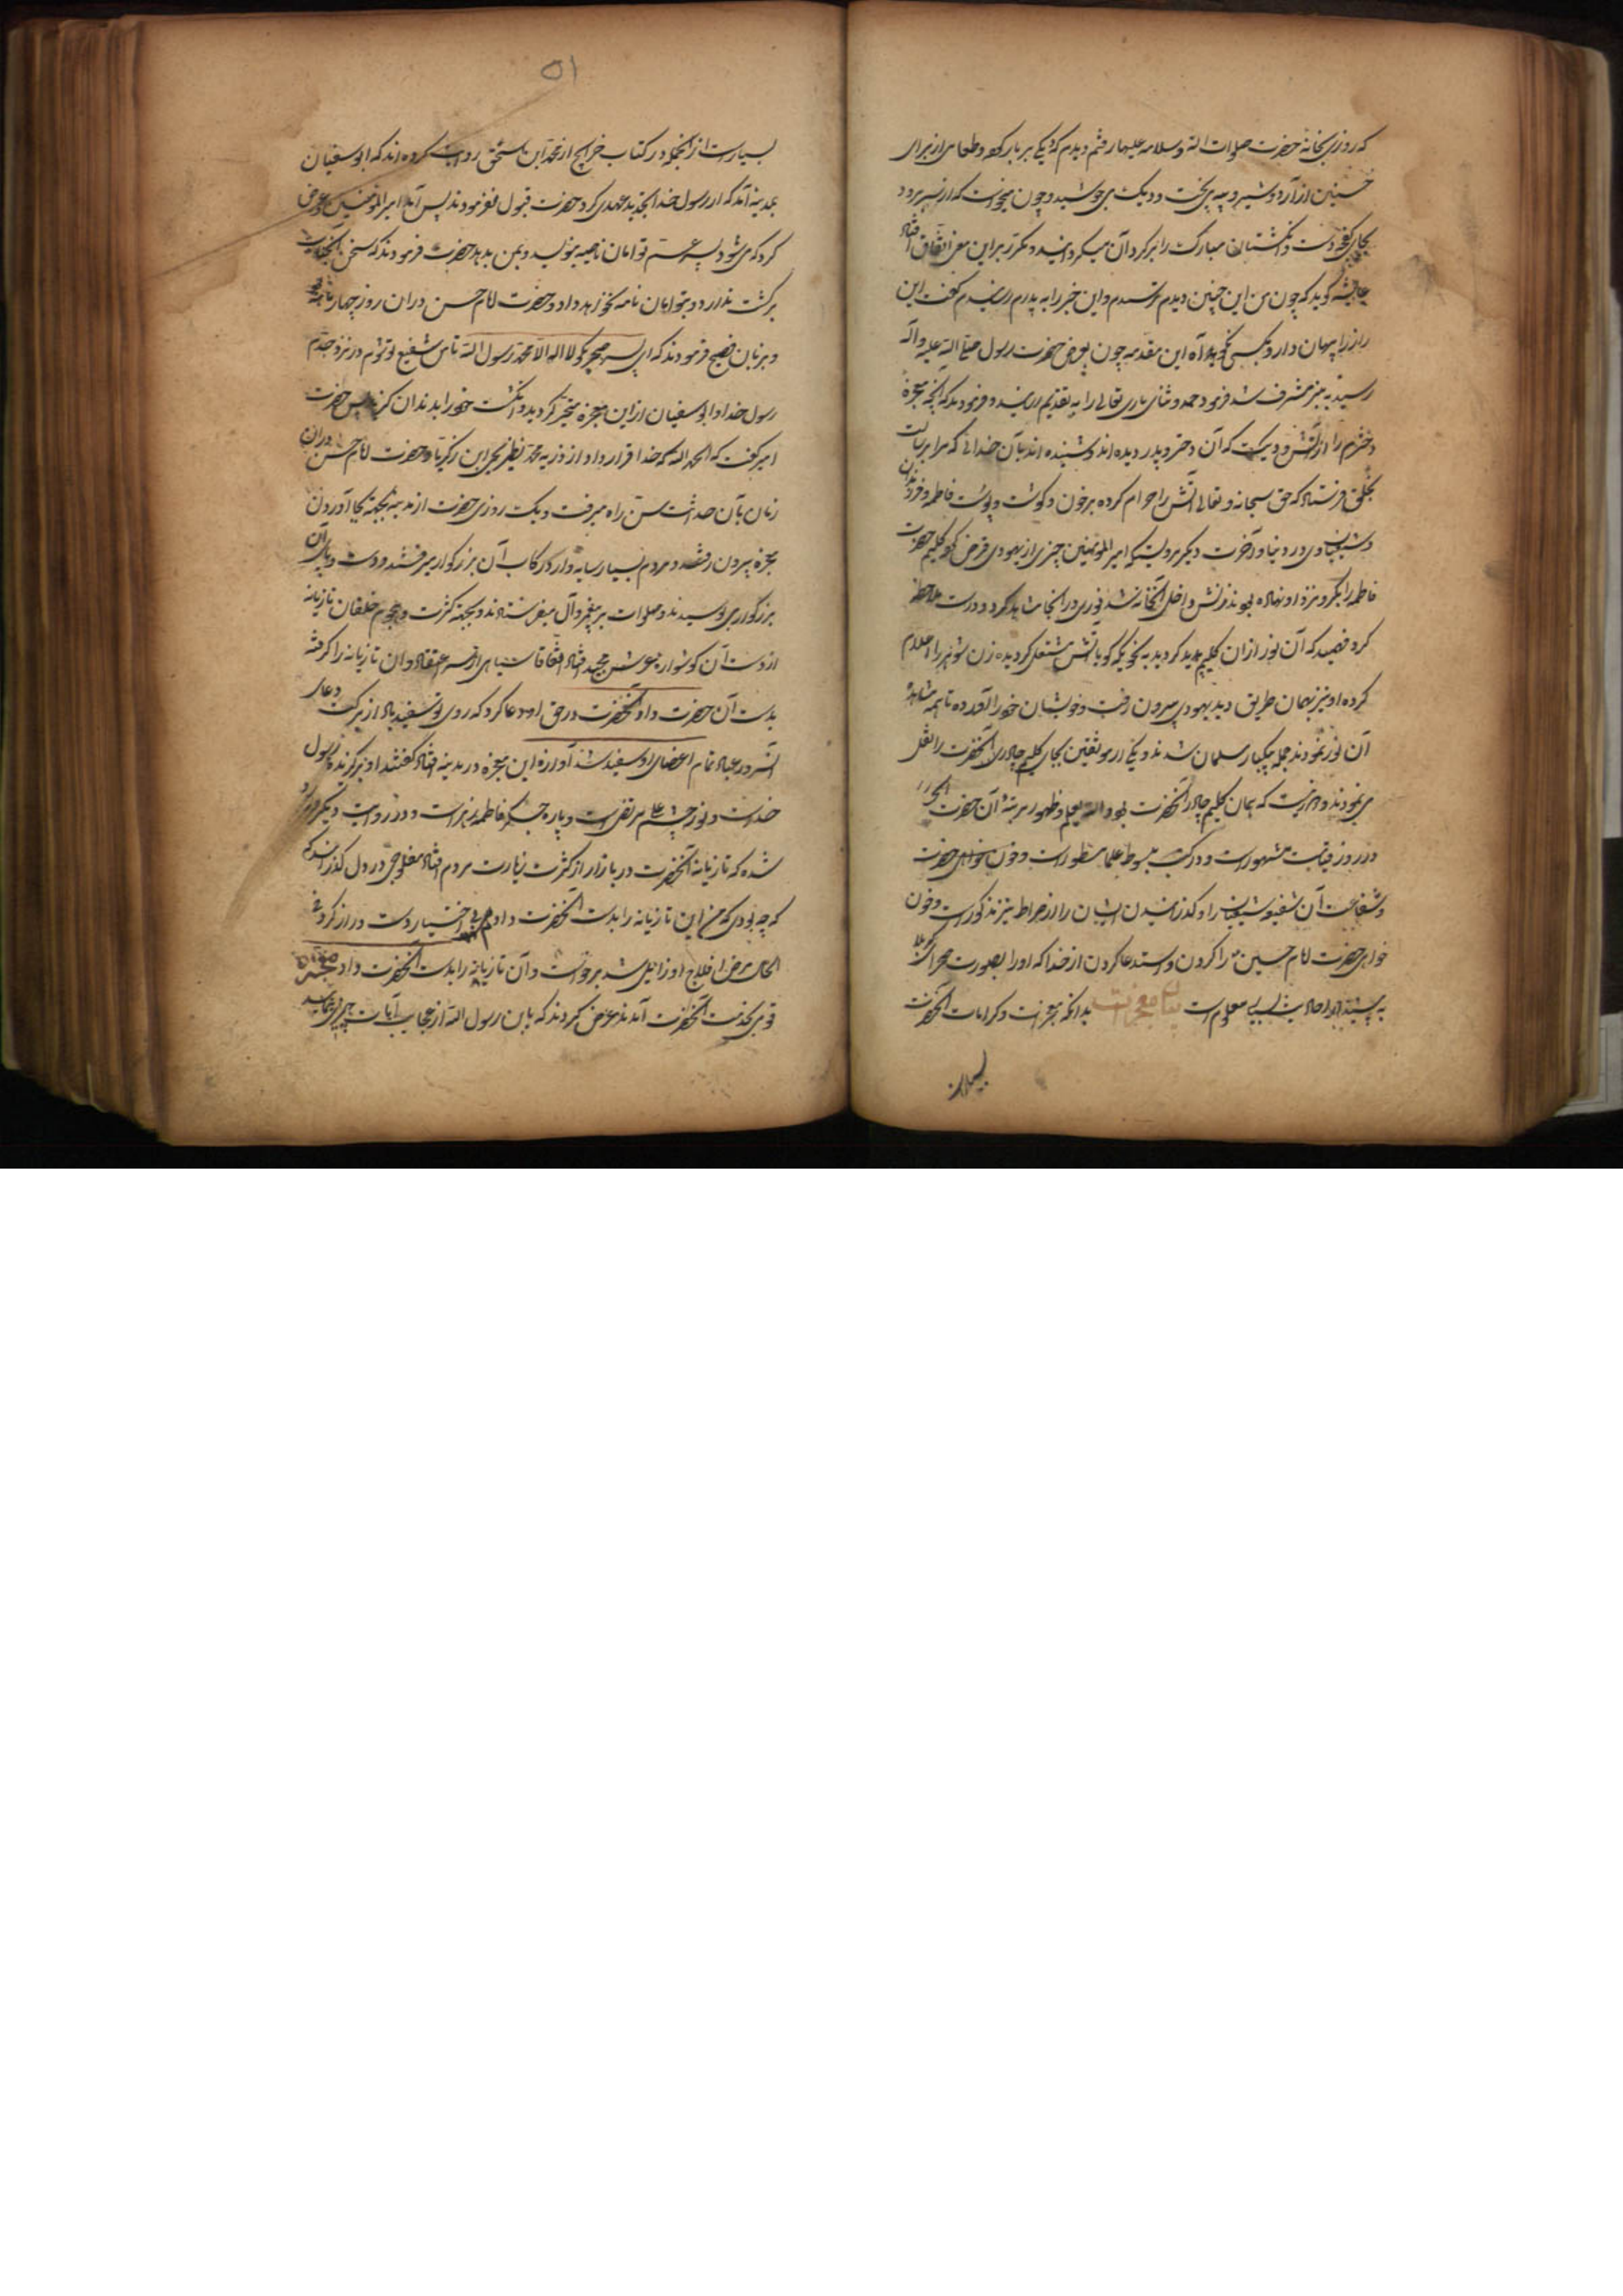 که روزی بخانه حضرت صلوات الله وسلامه علیها رفتم دیدم که دیکی بر بار کرده و طعامی از برای
حسنین از آرد و شیر و پیه می پخت و دیک می جوشید و چون میخواست که از سر برود
بجای کفچه دست و انکشتان مبارک را بر کرد آن میکردانید و مکرر بر این معنی اتفاق افتاد
عایشه کوید که چون من این چنین دیدم ترسیدم و این خبر را به پدرم رسانیدم کفت این
راز را پنهان دار و بکسی نکوید آه این مقدمه چون بعرض حضرت رسول صلی الله علیه وآله
رسید به منبر مشرف شد فرمود حمد و ثنای باری تعالی را به تقدیم رسانید و فرمودند که آنچه معجزه
دخترم را از آتش و دیک است که آن دختر و پدر دیده اند و شنیده اند بآن خدائی که مرا برسالت
بخلق فرستاد که حق سبحانه و تعالی آتش را حرام کرده بر خون و کوشت و پوست فاطمه و فرزندان
و شیعیان وی در دنیا و آخرت دیکر مرویست که امیرالمؤمنین چیزی از یهودی قرض کرد کلیم حضرت
فاطمه را بکرو نزد او نهاده بود زنش داخل آنخانه شد نوری در آنجا شاهد کرد و درست ملاحظه
کرد فهمید که آن نور از ان کلیم پدید کردید به نحویکه کویا آتش مشتعل کردیده زن شوهر را اعلام
کرده او نیز بهمان طریق دید یهودی بیرون رفت و خویشان خود را آورده تا همه مشاهده
آن نور نمودند جمله بیکبار مسلمان شدند و یکی از موثقین بجای کلیم چادر آنحضرت را نقل
می نمودند و مرویست که همان کلیم چادر آنحضرت بود والله یعلم و ظهور مرتبهٔ آن حضرت
در روز قیامت مشهور است و در کتب مبسوط علما مسطور است و خون خواهی حضرت
و شفاعت آن شفیعه شیعیان را و کذرانیدن ایشان را از صراط نیز مذکور است و خون
خواهی حضرت امام حسین را کردن و استدعا کردن از خدا که او را بصورت صحرای کربلا
به بیند از احادیث بسیار معلوم است بیان معجزات بدانکه معجزات و کرامات آنحضرت
بسیار
۵۱
بسیار است از آنجمله در کتاب خرایج از محمد ابن اسحق روایت کرده اند که ابوسفیان
بمدینه آمد که از رسول خدا تجدید عهدی کرد حضرت قبول نفرمودند پس آمد امیرالمؤمنین و عرض
کرد که می شود پسر عم تو امان نامه بنویسد و بمن بدهد حضرت فرمودند که سخن آنجناب
برکشت ندارد و بتو امان نامه نخواهد داد و حضرت امام حسن در ان روز چهارده ماهه
و بزبان فصیح فرمودند که ای پسر صخر بکو لا اله الا الله محمد رسول الله تا من شفیع تو شوم در نزد جدم
رسول خدا و ابوسفیان از این معجزه متحیر کردید و انکشت خود را بدندان کزید پس حضرت
امیر کفت که الحمد لله که خدا قرار داد از ذریه محمد نظیر یحیی ابن زکریا و حضرت امام حسن در ان
زمان بآن حداثت سن راه میرفت و یک روزی حضرت از مدینه بجهته بجا آوردن
عمره بیرون رفتند و مردم بسیار سایه وار در رکاب آن بزرکوار میرفتند و دست و پای آن
بزرکوار می بوسیدند و صلوات بر پیغمبر و آل میفرستادند و بجهته کثرت و هجوم خلقان تازیانه
از دست آن کوشوار عرش مجید افتاد اتفاقا سیاهی از سر اعتقاد و ان تازیانه را کرفته
بدست آن حضرت داد آنحضرت در حق او دعا کرد که روی تو سفید باد از برکت دعای
آنسرور عباد تمام اعضای او سفید شد آوازه این معجزه در مدینه افتاد کفتند او برکزیده رسول
خداست و نور چشم علی مرتضی است و پاره جکر فاطمه زهراست و در روایت دیکر وارد
شده که تازیانه آنحضرت در بازار از کثرت زیارت مردم افتاد مفلوجی در دل کذرانید
که چه بودی که من این تازیانه را بدست آنحضرت دادمی بی اختیار دست دراز کرد فی
الحال مرض افلاج او زایل شد برخواست و آن تازیانه را بدست آنحضرت داد معجزه
قومی بخدمت آنحضرت آمدند عرض کردند که یابن رسول الله از عجایب آیات چیزی بنمایید